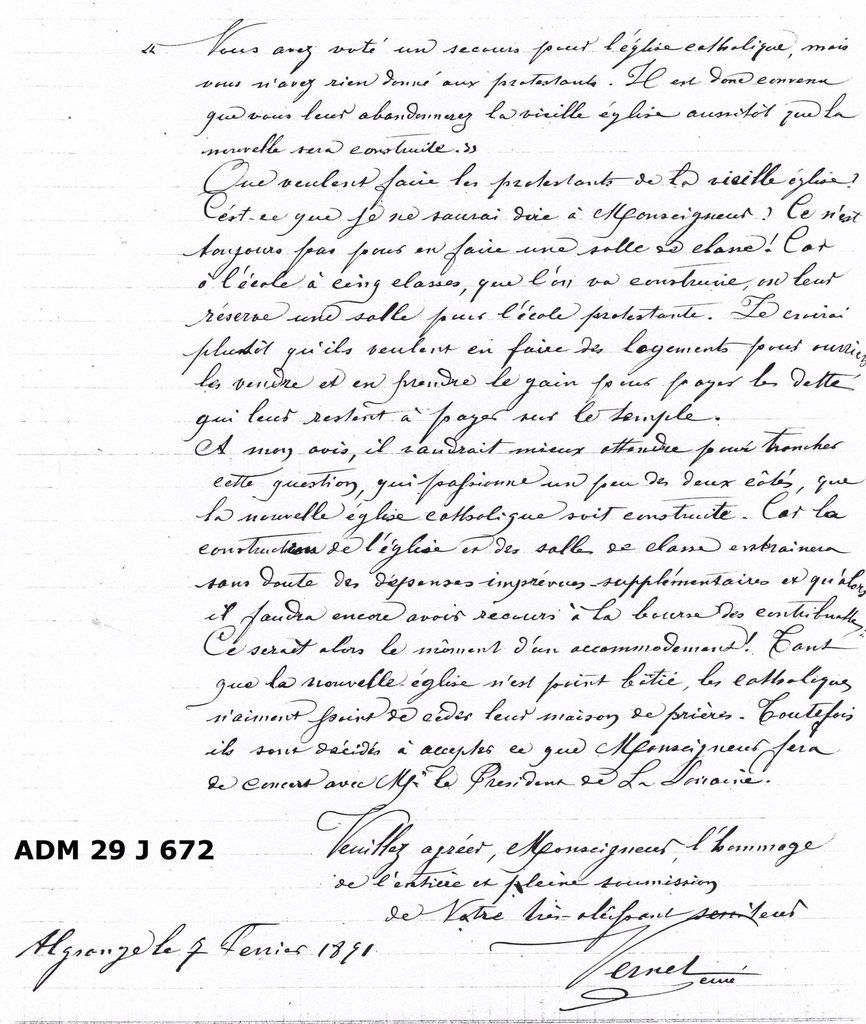 « Vous avez voté un secours pour l'église catholique, mais
vous n'avez rien donné aux protestants. Il est donc convenu
que vous leur abandonnerez la vieille église aussitôt que la
nouvelle sera construite. »
Que veulent faire les protestants de la vieille église?
C'est-ce que je ne saurai dire à Monseigneur! Ce n'est
toujours pas pour en faire une salle de classe! Car
à l'école à cinq classes, que l'on va construire, on leur
réserve une salle pour l'école protestante. Je croirai
plustôt qu'ils veulent en faire des logements pour ouvriers
les vendre et en prendre le gain pour payer les dette
qui leur restent à payer sur le temple.
A mon avis, il vaudrait mieux attendre pour trancher
cette question, qui passionne un peu des deux côtés, que
la nouvelle église catholique soit construite. Car la
construction de l'église et des salles de classe entrainera
sans doute des dépenses imprévues supplémentaires et qu'alors
il faudra encore avoir recours à la bourse des contribuables.
Ce serait alors le moment d'un accommodement! Tant
que la nouvelle église n'est point bâtie, les catholiques
n'aiment point de céder leur maison de prières. Toutefois
ils sont décidés à accepter ce que Monseigneur fera
de concert avec Mr le Président de La Lorraine.
Veuillez agréer, Monseigneur, l'hommage
de l'entière et pleine soumission
de Votre très-obéissant serviteur
ADM 29 J 672
Algrange le 7 Fevrier 1891
Vernet curé